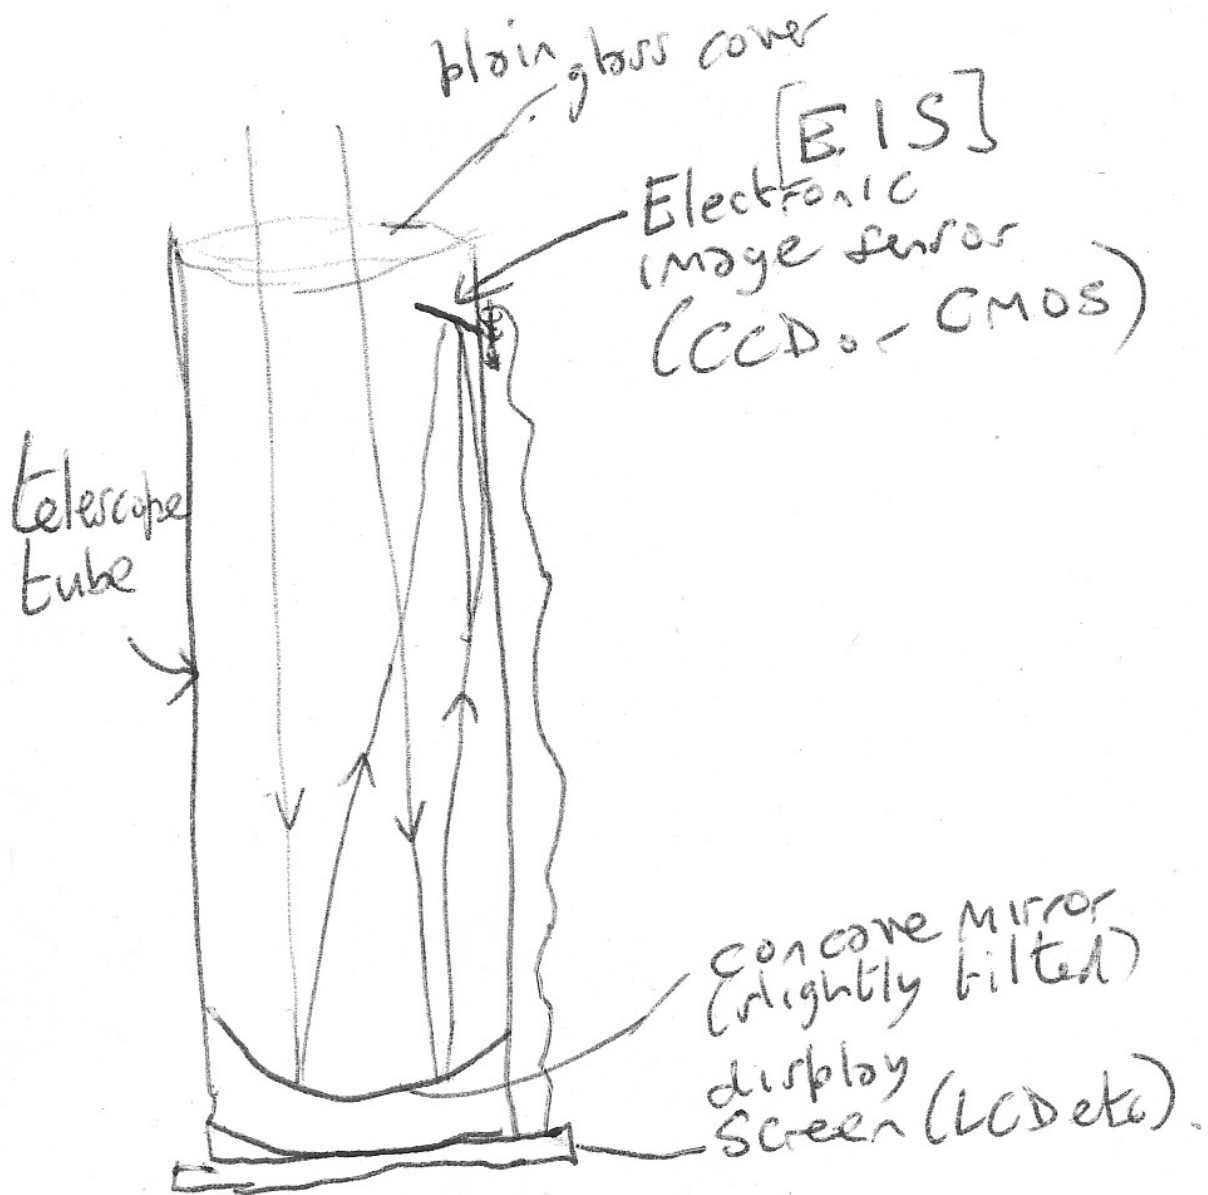 plain glass cover
[EIS]
Electronic
image sensor
(CCD or CMOS)
telescope
tube
concave mirror
(slightly tilted)
display
screen (LCD etc).